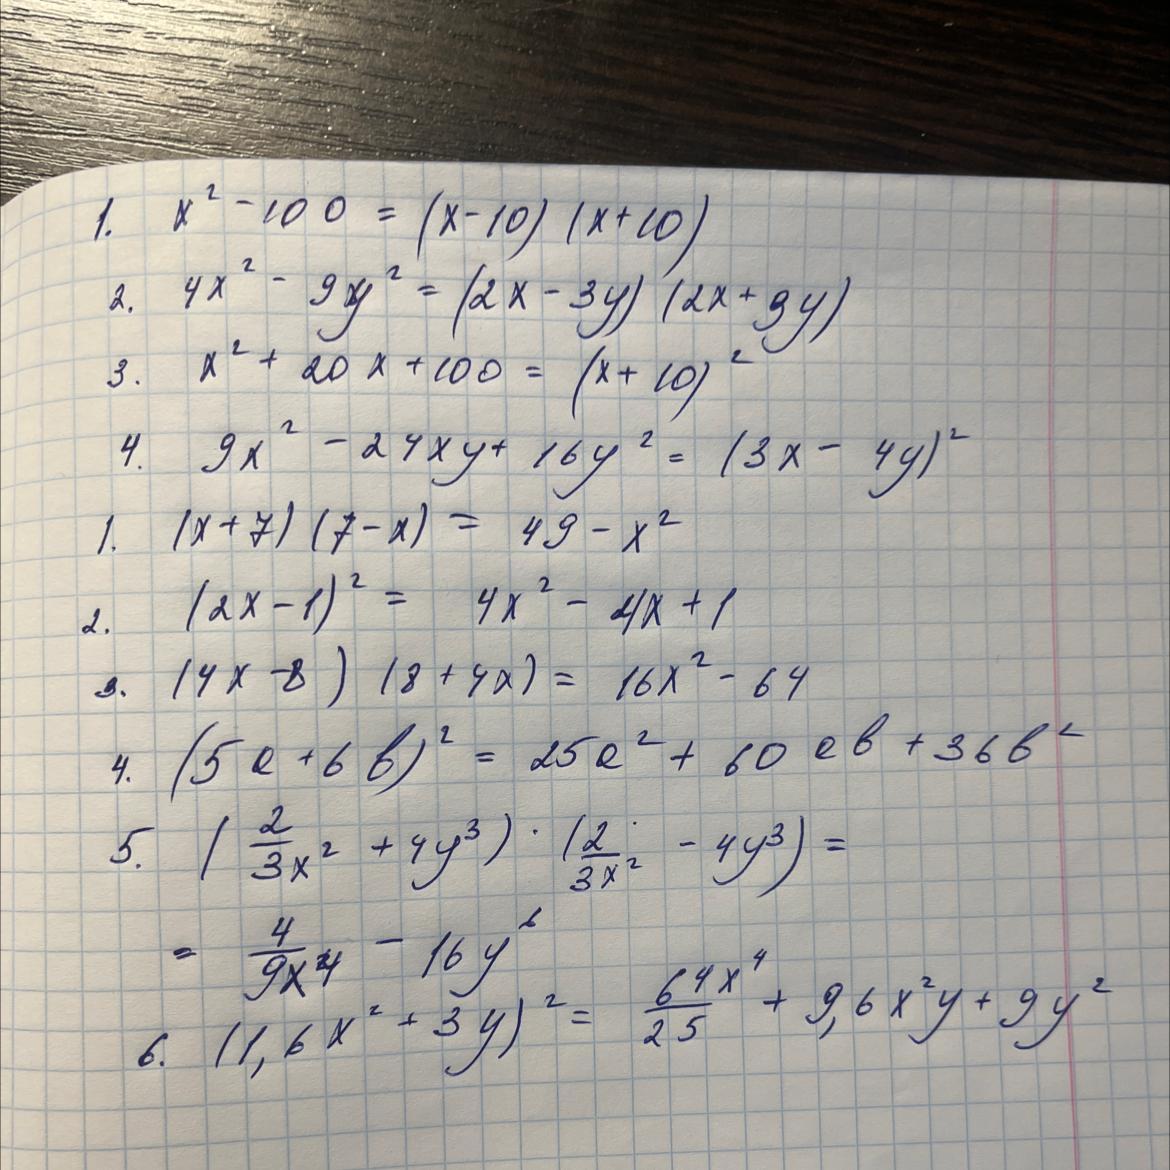 1. x² - 100 = (x-10) (x+10)
2. 4x² - 9y² = (2x - 3y) (2x + 9y)
3. x² + 20x + 100 = (x + 10)²
4. 9x² - 24xy + 16y² = (3x - 4y)²
1. (x+7) (7-x) = 49 - x²
2. (2x - 1)² = 4x² - 4x + 1
3. (4x - 8) (8 + 4x) = 16x² - 64
4. (5a + 6b)² = 25a² + 60ab + 36b²
5. (2/3x² + 4y³) · (2/3x² - 4y³) =
= 4/9x⁴ - 16y⁶
6. (1,6x² + 3y)² = 64x⁴/25 + 9,6x²y + 9y²